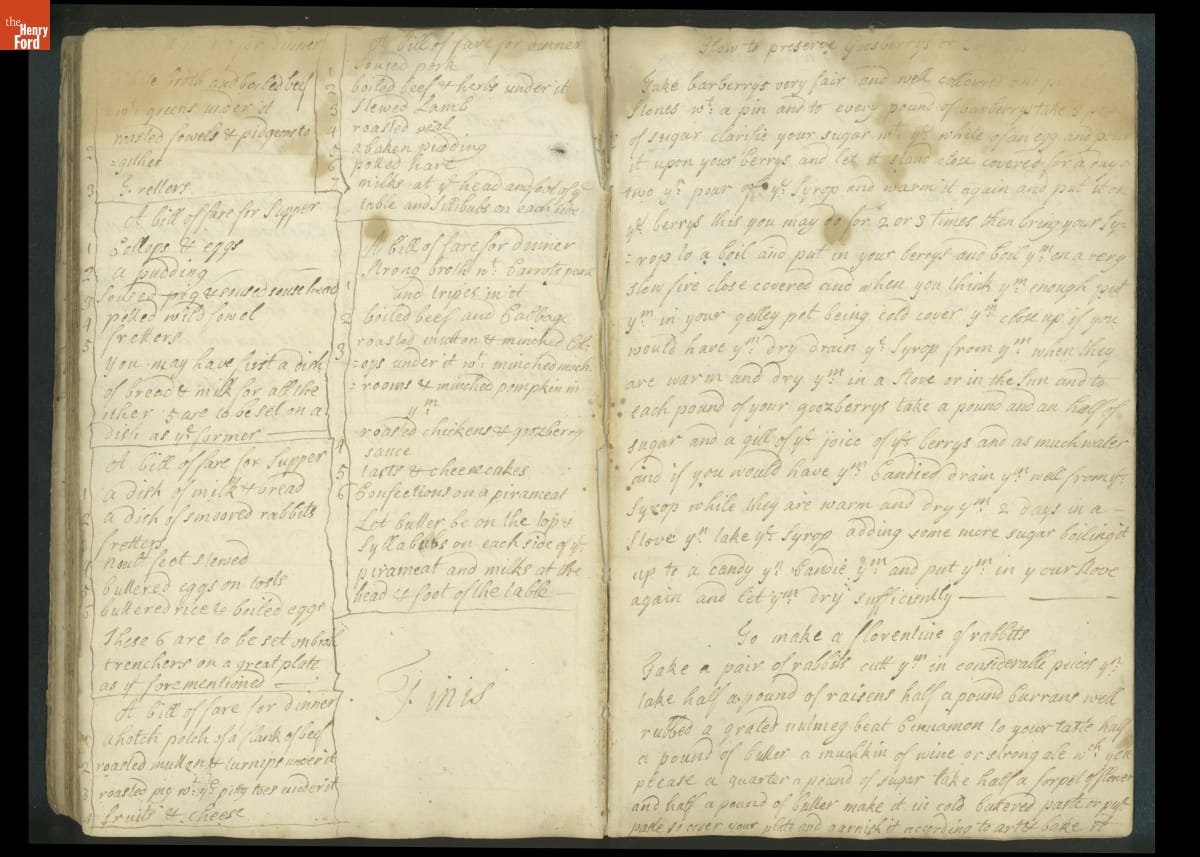 the
Henry
Ford
for dinner
broth and boiled beef
wt greens under it
roasted fowels & pidgeons to
=gither
3 fretters
A bill of fare for Supper
1 Collops & eggs
2 a pudding
3 soused pig & soused souse head
4 potted wild fowel
5 fretters
you may have first a dish
of bread & milk for all the
other 5 are to be set on a
dish as ye former
A bill of fare for Supper
1 a dish of milk & bread
2 a dish of smoored rabbits
fretters
noult feet stewed
5 buttered eggs on tosts
buttered rice & boiled eggs
These 6 are to be set on
trenchers on a great plate
as ye forementioned
A bill of fare for dinner
a hotch potch of a flank of beef
2 roasted mutton & turnips under it
3 roasted pig wt ye pitty toes under it
4 fruits & cheese
A bill of fare for dinner
1 soused pork
2 boiled beef & herbs under it
3 stewed Lamb
4 roasted veal
5 a baken pudding
6 potted hare
7 milks at ye head and foot of ye
table and sillibubs on each side
A bill of fare for dinner
1 Strong broth wt Carrots pease
and tripes in it
2 boiled beef and Cabbage
3 roasted mutton & minched Col-
=ops under it wt minched much
=rooms & minched pompkin in
ym
4 roasted chickens & goozberry
sauce
5 tarts & cheesecakes
6 Confections on a pirameat
Let butter be on the top &
Syllabubs on each side of ye
pirameat and milks at the
head & foot of the table
Finis
How to preserve goosberrys or
Take barberrys very fair and well coloured and
stones wt a pin and to every pound of barberrys take 3
of sugar clarifie your sugar wt ye white of an egg and pour
it upon your berrys and let it stand close covered for a day or
two yn pour off ye Syrop and warm it again and put it on
ye berrys this you may do for 2 or 3 times then bring your Sy-
=rop to a boil and put in your berrys and boil ym on a very
slow fire close covered and when you think ym enough put
ym in your gelley pot being cold cover ym close up if you
would have ym dry drain ye Syrop from ym when they
are warm and dry ym in a stove or in the Sun and to
each pound of your goozberrys take a pound and an half of
sugar and a gill of ye joice of ye berrys and as much water
and if you would have ym Candied drain ym well from ye
Syrop while they are warm and dry ym 2 days in a
stove yn take ye Syrop adding some more sugar boiling it
up to a candy yn Candie ym and put ym in your stove
again and let ym dry sufficiently
To make a florentine of rabbits
Take a pair of rabbits cutt ym in considerable peices yn
take half a pound of raisens half a pound Currans well
rubbed a grated nutmeg beat Cinnamon to your taste half
a pound of butter a muchkin of wine or strong ale wch you
please a quarter a pound of sugar take half a forpet of flower
and half a pound of butter make it in cold buttered paste or puf
paste so cover your plate and garnish it according to art & bake it